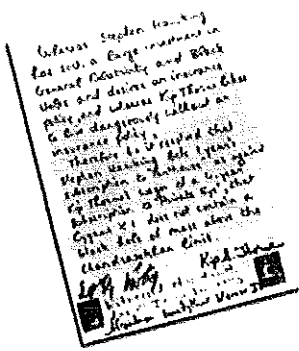 Whereas Stephen Hawking
has such a large investment in
General Relativity and Black
Holes and desires an insurance
policy, and whereas Kip Thorne likes
to live dangerously without an
insurance policy,
Therefore be it resolved that
Stephen Hawking bets 1 year's
subscription to "Penthouse" as against
Kip Thorne's wager of a 4-year
subscription to "Private Eye", that
Cygnus X-1 does not contain a
black hole of mass above the
Chandrasekhar limit.
Kip S. Thorne